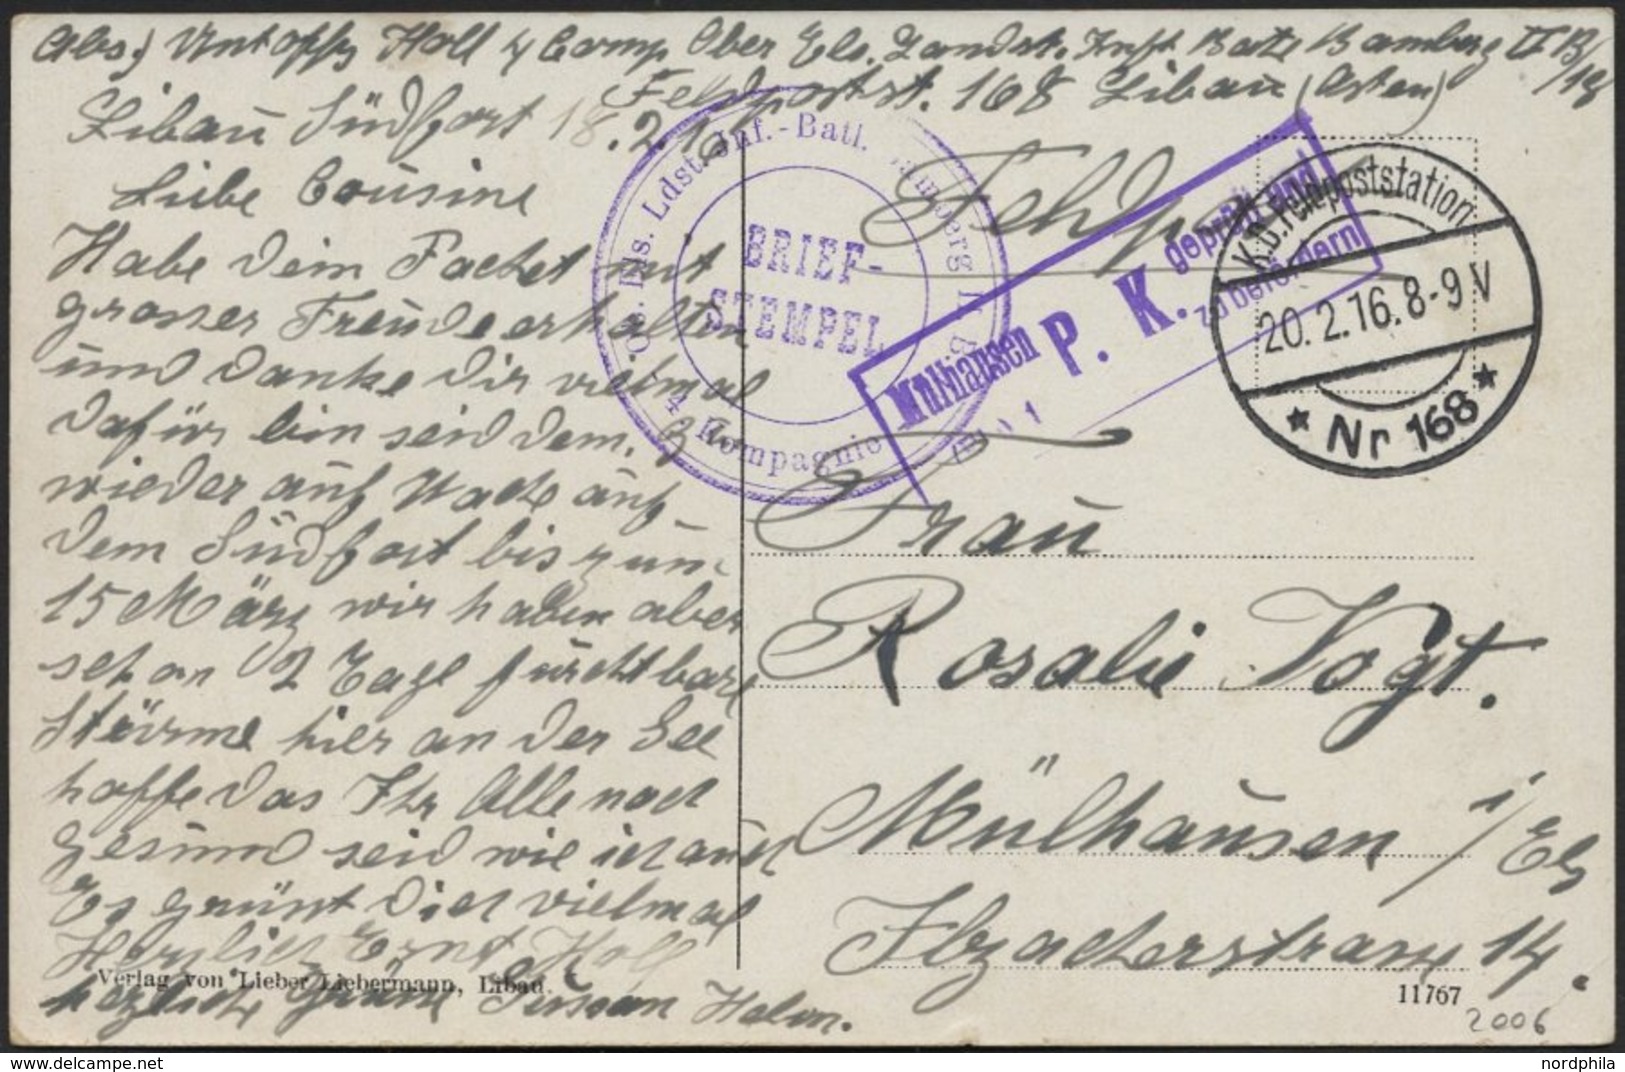 Abs. Untoffz Holl 4 Comp Ober Els. Landst. Inft Batl Bamberg II B/18
Feldpostst. 168 Libau (Osten)
Libau Südfort 18.2.16
Liebe Cousine
Habe dein Packet mit
grosser Freude erhalten
und danke dir vielmal
dafür bin seid dem.
wieder auf Wache auf
dem Südfort bis zum
15 März wir haben aber
schon 2 Tage furchtbare
Stürme hier an der See
hoffe das Ihr Alle noch
gesund seid wie ich auch
Es grünt Dich vielmal
Herzlich Ernst Holl
herzliche Grüsse
Verlag von Lieber Liebermann, Libau.
Ldst. Inf.-Batl. Bamberg II B
BRIEF-
STEMPEL
4 Kompagnie
Mülhausen P. K. geprüft und
zu befördern
K.B. Feldpoststation
20.2.16. 8-9 V
* Nr 168 *
Frau
Rosalie Vogt.
Mülhausen i/Els
Illzacherstrasse 14.
11767
2006
nordphila